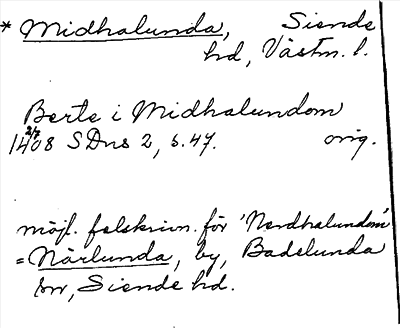 * Midhalunda, Siende
hd, Västm. l.
Berte i Midhalundom
2/7
1408 SDns 2, s. 47. orig.
möjl. felskrivn. för 'Nerdhalundom'
= Närlunda, by, Badelunda
sn, Siende hd.